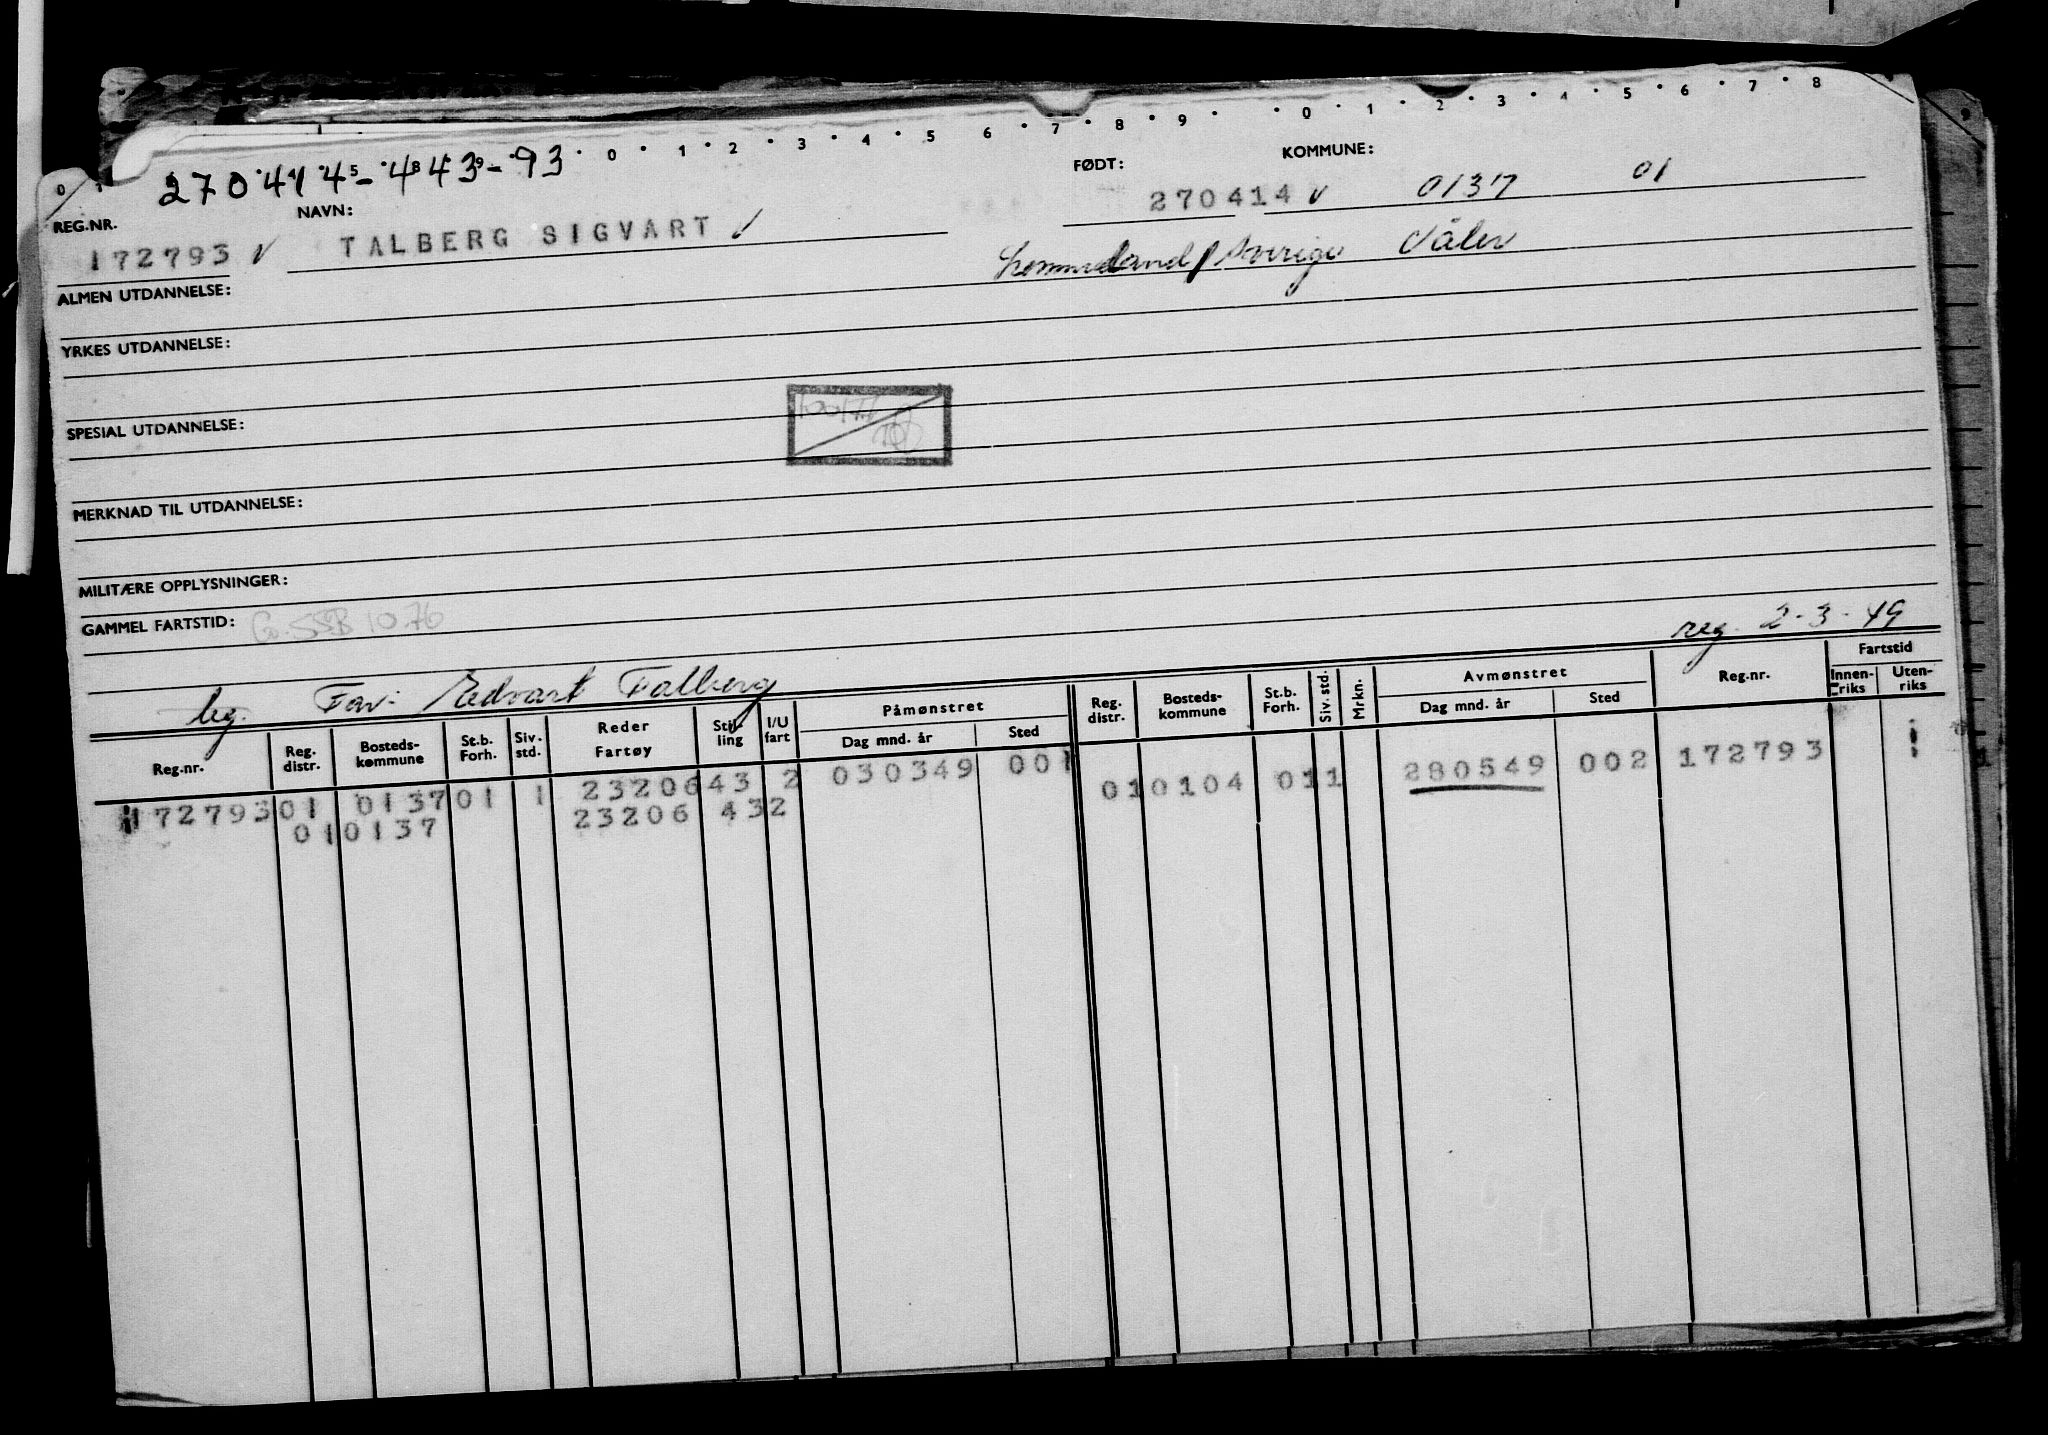 0 1 2 3 4 5 6 7 8 9 0 1 2 3 4 5 6 7 8
270414-443-93
FØDT: KOMMUNE:
REG.NR. NAVN: 270414 v 0137 01
172793 v TALBERG SIGVART ✓
Sverige Våler
ALMEN UTDANNELSE:
YRKES UTDANNELSE:
SPESIAL UTDANNELSE:
MERKNAD TIL UTDANNELSE:
MILITÆRE OPPLYSNINGER:
GAMMEL FARTSTID: SSB 10.76
reg. 2-3-49
leg. Far: Edvart Talberg
Reg.nr. Reg. distr. Bosteds-kommune St.b. Forh. Siv. std. Reder Fartøy Stilling I/U fart Påmønstret Dag mnd. år Sted Reg. distr. Bosteds-kommune St.b. Forh. Siv. std. Mrkn. Avmønstret Dag mnd. år Sted Reg.nr. Fartstid Innen-riks Uten-riks
172793 01 0137 01 1 23206 43 2 030349 001 01 0104 01 1 280549 002 172793
01 0137 23206 43 2